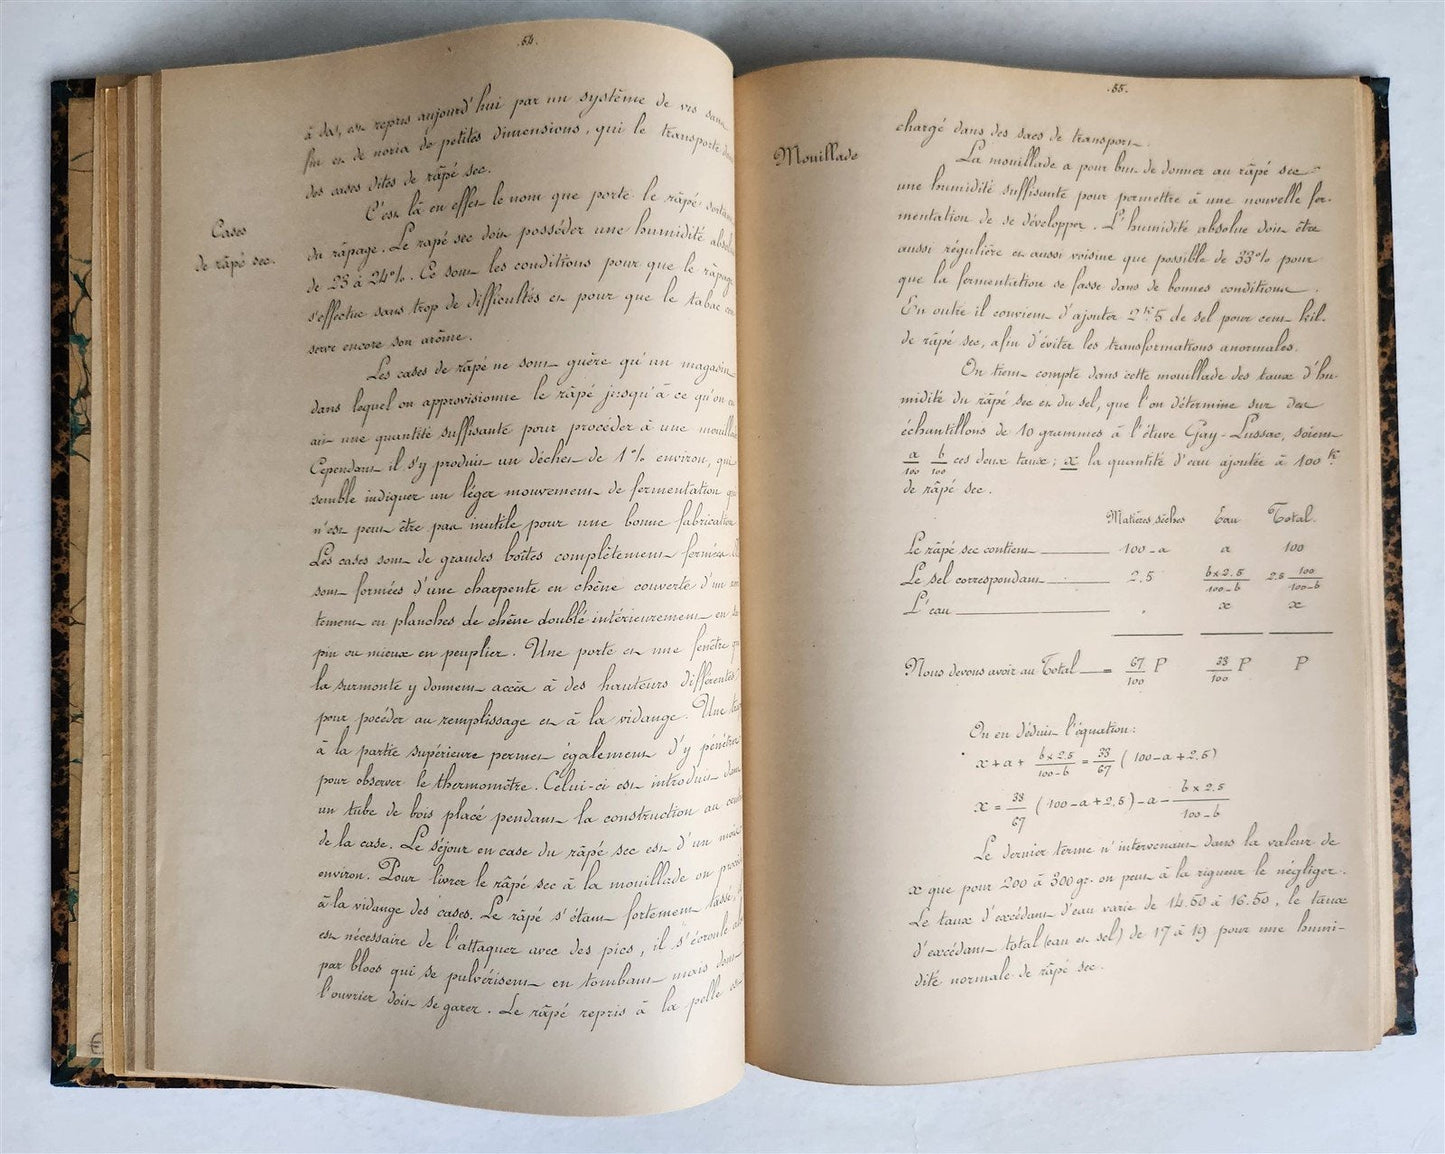 .54.
à dos, est repris aujourd'hui par un système de vis sans
fin et de noria de petites dimensions, qui le transporte dans
des cases dites de râpé sec.
Cases
de râpé sec.
C'est là en effet le nom que porte le râpé sortant
du râpage. Le rapé sec doit posséder une humidité absolue
de 23 à 24%. Ce sont les conditions pour que le râpage
s'effectue sans trop de difficultés et pour que le tabac con
serve encore son arôme.
Les cases de râpé ne sont guère qu'un magasin
dans lequel on approvisionne le râpé jusqu'à ce qu'on en
ait une quantité suffisante pour procéder à une mouillade
Cependant il s'y produit un déchet de 1% environ, qui
semble indiquer un léger mouvement de fermentation qui
n'est peut être pas inutile pour une bonne fabrication
Les cases sont de grandes boîtes complètement fermées. Elles
sont formées d'une charpente en chêne couverte d'un
tement en planches de chêne doublé intérieurement en sa
pin ou mieux en peuplier. Une porte et une fenêtre qui
la surmonte y donnent accès à des hauteurs différentes
pour pocéder au remplissage et à la vidange. Une
à la partie supérieure permet également d'y pénétrer
pour observer le thermomètre. Celui-ci est introduit dans
un tube de bois placé pendant la construction au centre
de la case. Le séjour en case du râpé sec est d'un mois
environ. Pour livrer le râpé sec à la mouillade on procède
à la vidange des cases. Le râpé s'étant fortement tassé, il
est nécessaire de l'attaquer avec des pics, il s'écroule alors
par blocs qui se pulvérisent en tombant mais dont
l'ouvrier doit se garer. Le râpé repris à la pelle est
.55.
chargé dans des sacs de transport.
Mouillade
La mouillade a pour but de donner au râpé sec
une humidité suffisante pour permettre à une nouvelle fer-
mentation de se développer. L'humidité absolue doit être
aussi régulière et aussi voisine que possible de 33% pour
que la fermentation se fasse dans de bonnes conditions.
En outre il convient d'ajouter 2k5 de sel pour cent kil.
de râpé sec, afin d'éviter les transformations anormales.
On tient compte dans cette mouillade des taux d'hu-
midité du râpé sec et du sel, que l'on détermine sur des
échantillons de 10 grammes à l'étuve Gay-Lussac, soient
a/100 b/100 ces deux taux; x la quantité d'eau ajoutée à 100k.
de râpé sec.
Matières sèches Eau Total.
Le râpé sec contient 100-a a 100
Le sel correspondant 2.5 b×2.5/100-b 2.5 100/100-b
L'eau . x x
Nous devons avoir au Total = 67/100 P 33/100 P P
On en déduit l'équation:
x+a+ b×2.5/100-b = 33/67 (100-a+2.5)
x = 33/67 (100-a+2.5)-a- b×2.5/100-b
Le dernier terme n'intervenant dans la valeur de
x que pour 200 à 300gr. on peut à la rigueur le négliger.
Le taux d'excédant d'eau varie de 14.50 à 16.50, le taux
d'excédant total (eau et sel) de 17 à 19 pour une humi-
dité normale de râpé sec.